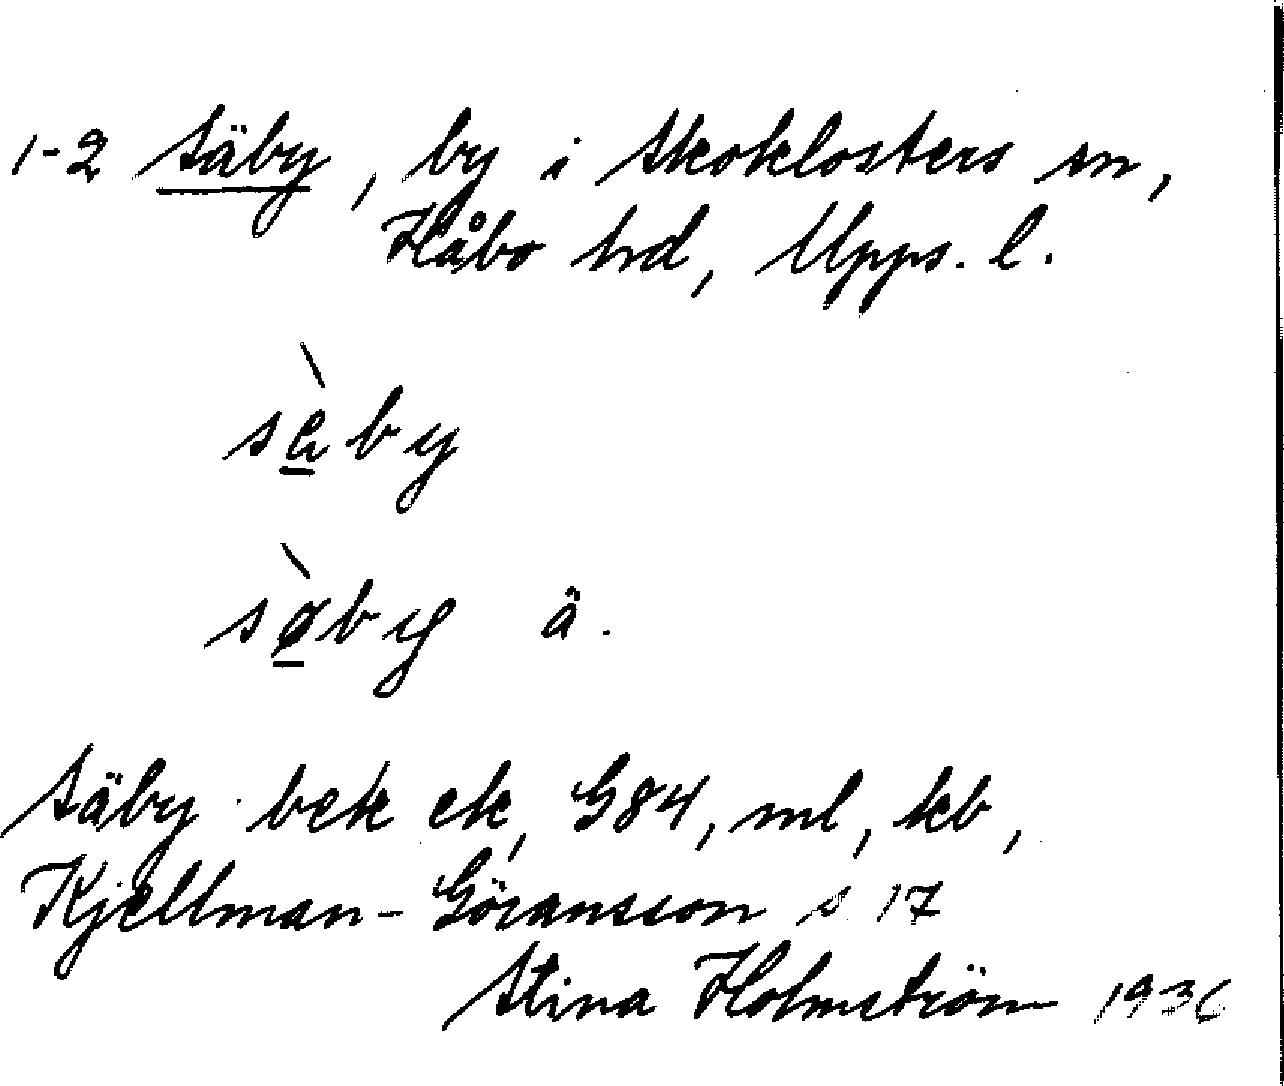 1-2 Säby, by i Skoklosters sn,
Håbo hd, Upps. l.
sàby
sø̀by ä.
Säby bek ek, G84, ml, kb,
Kjellman-Göransson s 17
Stina Holmström 1936